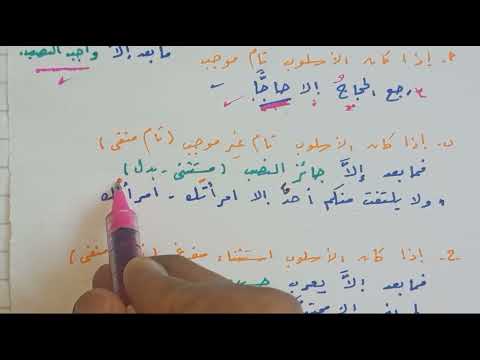 أ. إذا كان الأسلوب تام موجب
ما بعد إلا واجب النصب.
رجع الحجاجُ إلا حاجًّا
ب. إذا كان الأسلوب تام غير موجب (تام منفى)
فما بعد إلاَّ جائز النصب (مستثنى - بدل)
ولا يلتفت منكم أحدٌ إلا امرأتَك - امرأتُك
ج. إذا كان الأسلوب استثناء مفرغ منفى)
فما بعد إلاَّ يعرب